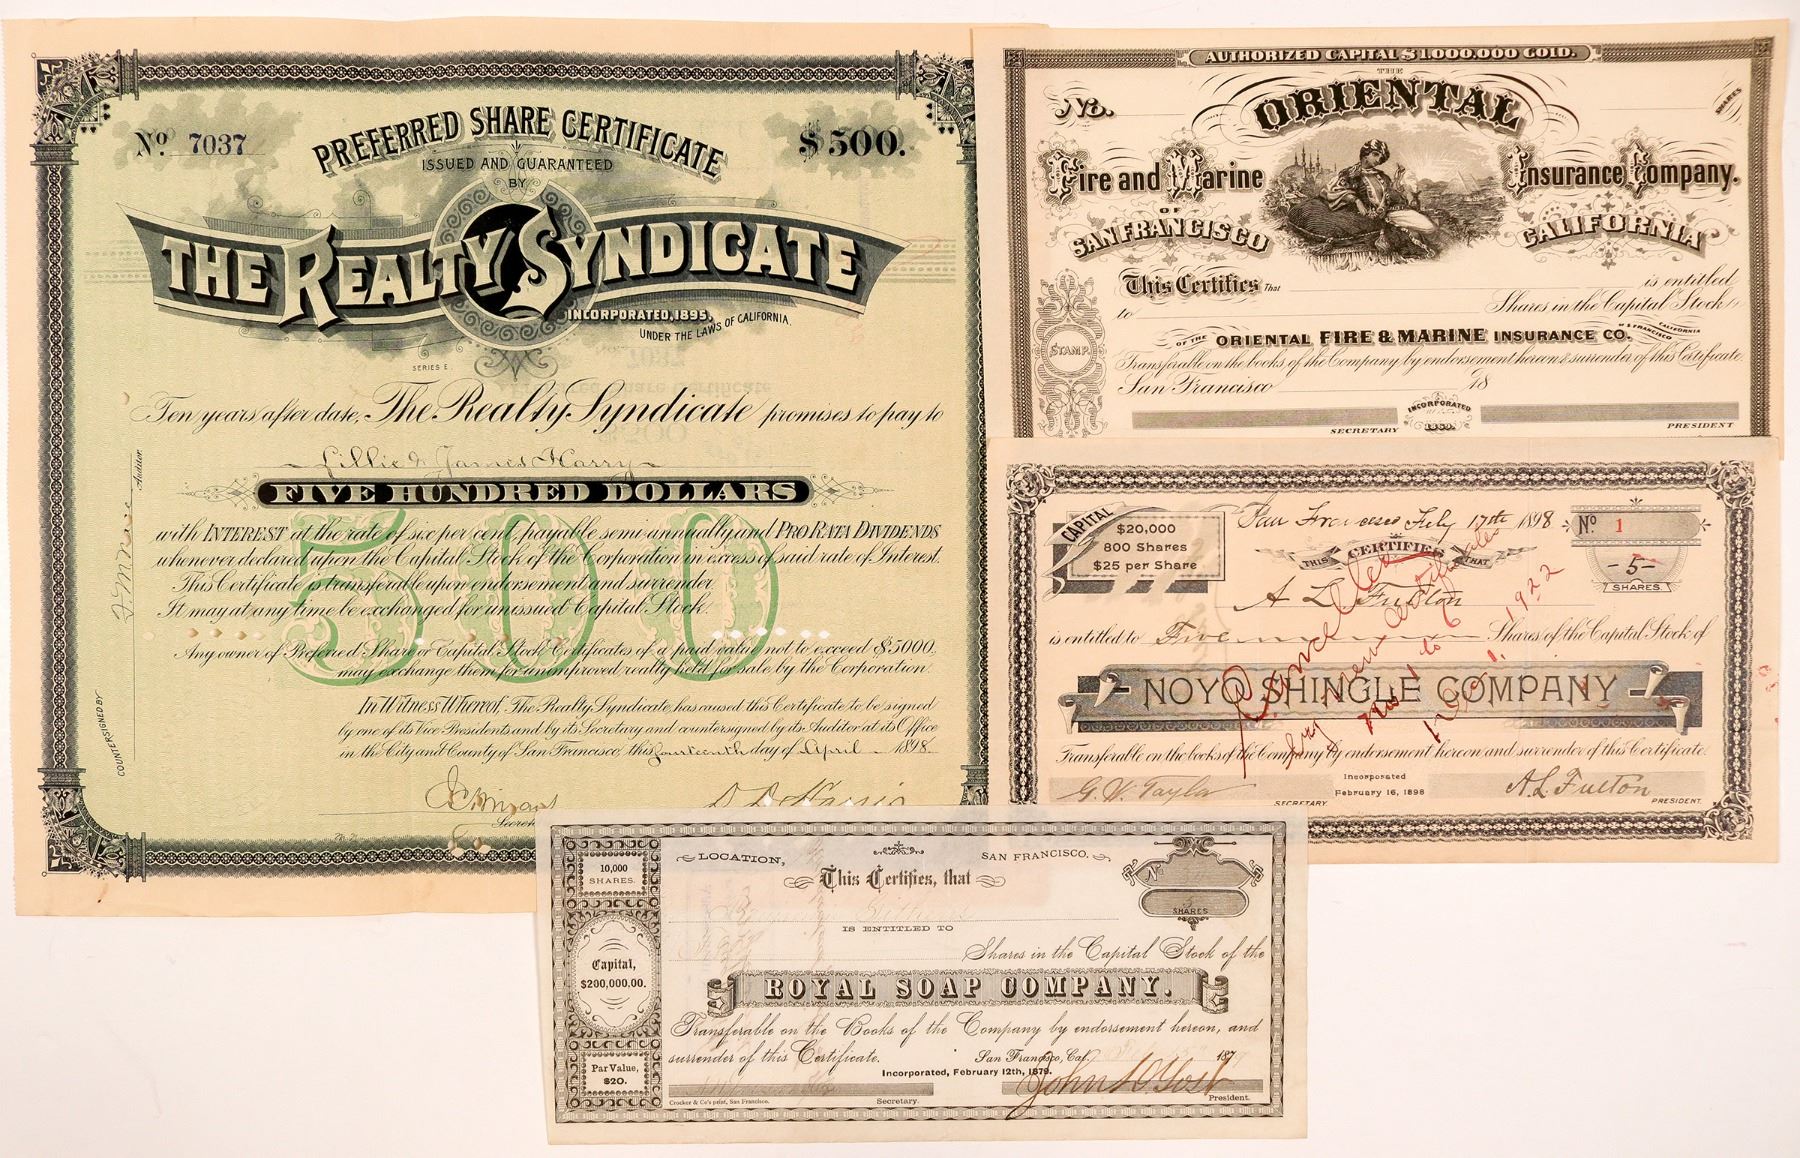 No. 7037
PREFERRED SHARE CERTIFICATE
$500.
ISSUED AND GUARANTEED
BY
THE REALTY SYNDICATE
INCORPORATED, 1895,
UNDER THE LAWS OF CALIFORNIA.
SERIES E.
Ten years after date, The Realty Syndicate promises to pay to
Lillie & James Harry
FIVE HUNDRED DOLLARS
500
with INTEREST at the rate of six per cent, payable semi-annually and PRO RATA DIVIDENDS
whenever declared upon the Capital Stock of the Corporation in excess of said rate of Interest.
This Certificate is transferable upon endorsement and surrender.
It may at any time be exchanged for unissued Capital Stock.
Any owner of Preferred Share or Capital Stock Certificates of a paid value not to exceed $5000.
may exchange them for unimproved realty held for sale by the Corporation.
In Witness Whereof, The Realty Syndicate has caused this Certificate to be signed
by one of its Vice Presidents and by its Secretary and countersigned by its Auditor at its Office
in the City and County of San Francisco, this fourteenth day of April 1898.
COUNTERSIGNED BY
Auditor
AUTHORIZED CAPITAL $1,000,000 GOLD.
No.
THE
ORIENTAL
SHARES
Fire and Marine Insurance Company.
OF
SAN FRANCISCO CALIFORNIA
This Certifies That
is entitled
to
Shares in the Capital Stock
OF THE ORIENTAL FIRE & MARINE INSURANCE CO. OF S. FRANCISCO CALIFORNIA
Transferable on the books of the Company by endorsement hereon & surrender of this Certificate.
STAMP.
San Francisco 18
INCORPORATED
1869.
SECRETARY
PRESIDENT
CAPITAL
$20,000
800 Shares
$25 per Share
San Francisco July 17th 1898
No. 1
THIS CERTIFIES THAT
-5-
SHARES
A L Fulton
is entitled to Five Shares of the Capital Stock of
NOYO SHINGLE COMPANY
Cancelled
by new Certificates
1922
Transferable on the books of the Company by endorsement hereon and surrender of this Certificate.
G. W. Taylor
SECRETARY
Incorporated
February 16, 1898
A. L. Fulton
PRESIDENT
10,000
SHARES.
Capital,
$200,000.00.
Par Value,
$20.
LOCATION, SAN FRANCISCO.
This Certifies, that
No.
3
SHARES
IS ENTITLED TO
Shares in the Capital Stock of the
ROYAL SOAP COMPANY.
Transferable on the Books of the Company by endorsement hereon, and
surrender of this Certificate.
San Francisco, Cal. 187
Incorporated, February 12th, 1879.
John D Yost
Crocker & Co's print, San Francisco.
Secretary.
President.